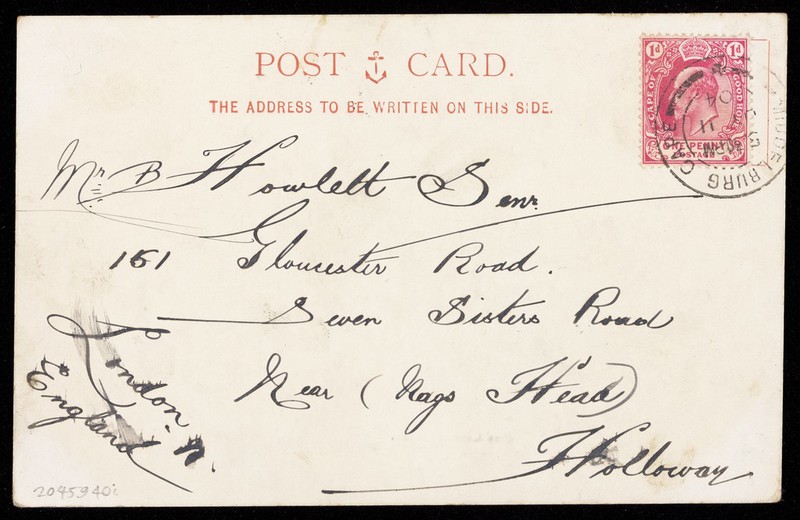 POST CARD.
THE ADDRESS TO BE WRITTEN ON THIS SIDE.
1d 1d
CAPE OF GOOD HOPE
ONE PENNY
POSTAGE
MIDDELBURG
04
Mr B Howlett Senr
161 Gloucester Road.
Seven Sisters Road
Near (Nags Head)
Holloway
London. N.
England
2045940i